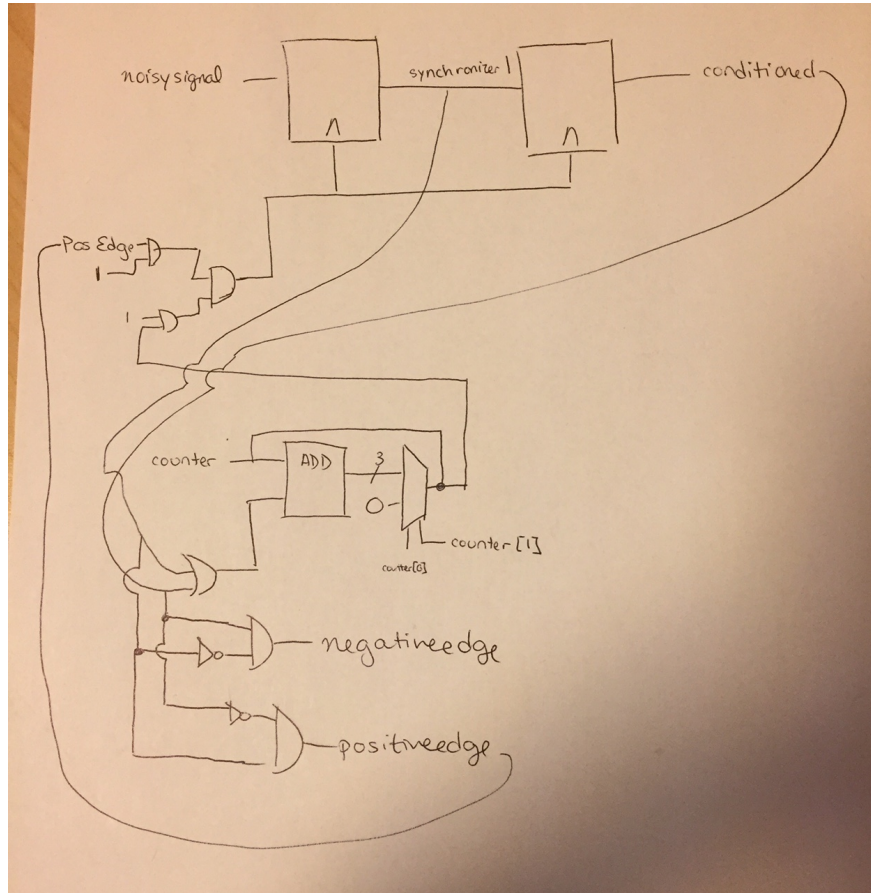 noisysignal
synchronizer1
conditioned
Pos Edge
1
1
counter
ADD
3
0
counter[1]
counter[0]
negativeedge
positiveedge